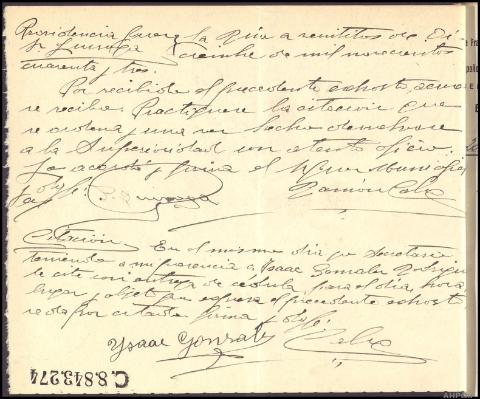 Providencia Juez
Sr Zuroga
la Rúa a veintitres de Di
ciembre de mil novecientos
cuarenta y tres.
Por recibido el precedente exhorto, acuse
se recibo. Practiquese la citacion que
se ordena y una vez hecho devuelvase
a la Superioridad con atento oficio.
Lo acordó y firma el Juez Municipal
doy fe:
Ramon
Citación En el mismo dia yo Secretario
teniendo a mi presencia a Isaac Gonzalez Rodrigu
le cite con entrega de cédula, para el dia, hora
lugar y objeto que expresa el precedente exhorto
queda por citado firma y doy fe;
Ysaac Gonzalez
C.8.843.274
AHPOU